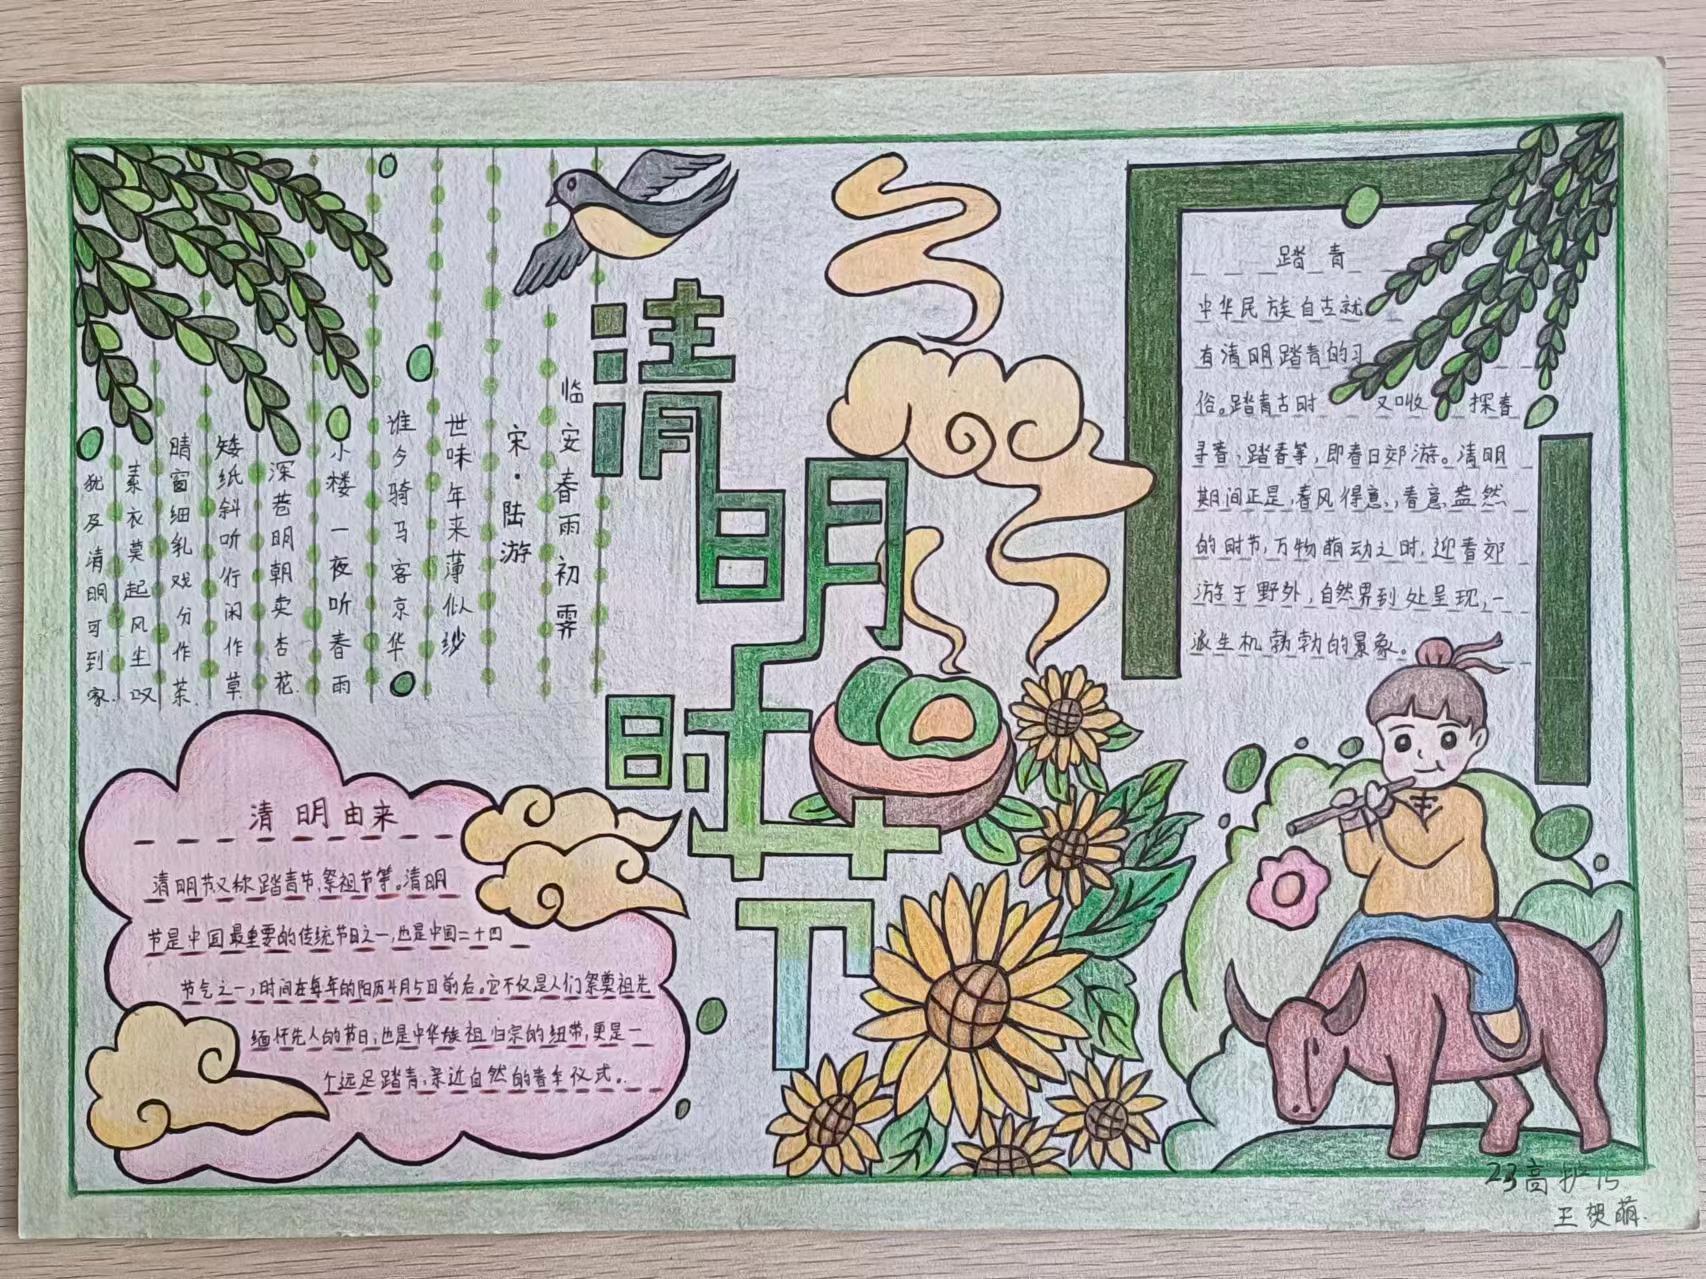 清明时节
临安春雨初霁
宋·陆游
世味年来薄似纱
谁今骑马客京华
小楼一夜听春雨
深巷明朝卖杏花
矮纸斜听行闲作草
晴窗细乳戏分作茶
素衣莫起风生叹
犹及清明可到家.
清明由来
清明节又称踏青节,祭祖节等。清明
节是中国最重要的传统节日之一,也是中国二十四
节气之一,时间在每年的阳历4月5日前后。它不仅是人们祭奠祖先
缅怀先人的节日,也是中华族祖归宗的纽带,更是一
个远足踏青、亲近自然的春季仪式。
踏青
中华民族自古就
有清明踏青的习
俗。踏青古时又叫探春
寻春、踏春等,即春日郊游。清明
期间正是,春风得意,春意盎然
的时节,万物萌动之时,迎春郊
游于野外,自然界到处呈现,一
派生机勃勃的景象。
23高护15
王贺萌.